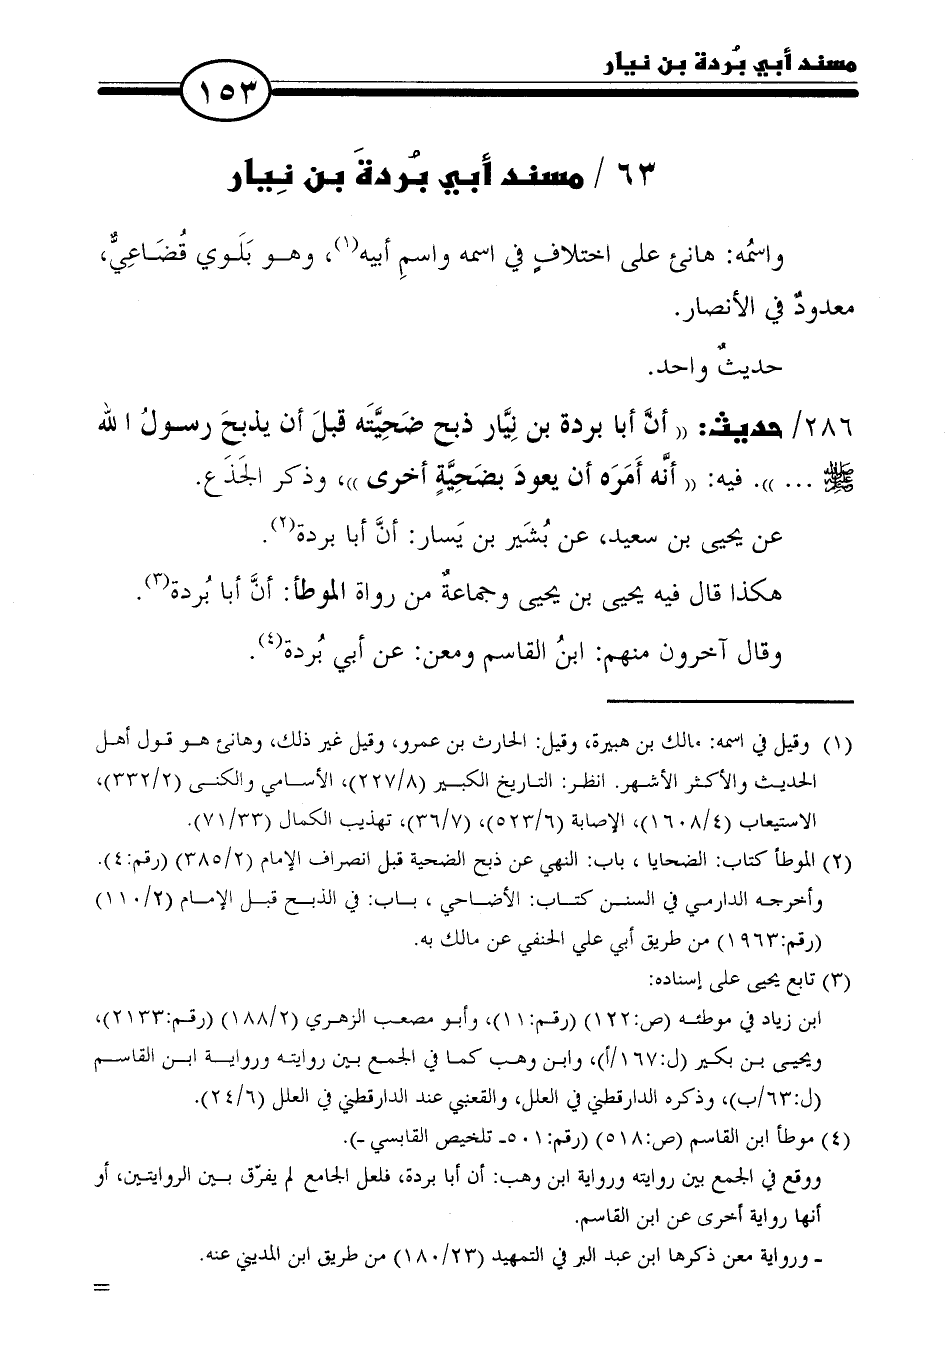 مسند أبي بُردة بن نيار
١٥٣
٦٣/ مسند أبي بُردةَ بن نِيار
واسمُه: هانئ على اختلافٍ في اسمه واسمِ أبيه(١)، وهـو بَلَوي قُضَـاعِيٌّ،
معدودٌ في الأنصار.
حديثٌ واحد.
٢٨٦/ حديث: « أنَّ أبا بردة بن نِيَّار ذبح ضَحِيَّتَه قبلَ أن يذبحَ رسـولُ الله
ﷺ ... ». فيه: « أنَّه أَمَرَه أن يعودَ بضَحِيَّةٍ أخرى »، وذكر الجَذَع.
عن يحيى بن سعيد، عن بُشَير بن يَسار: أنَّ أبا بردة(٢).
هكذا قال فيه يحيى بن يحيى وجماعةٌ من رواة الموطأ: أنَّ أبا بُردة(٣).
وقال آخرون منهم: ابنُ القاسم ومعن: عن أبي بُردة(٤).
(١) وقيل في اسمه: مالك بن هبيرة، وقيل: الحارث بن عمرو، وقيل غير ذلك، وهانئ هـو قـول أهـل
الحديـث والأكـثر الأشـهر. انظـر: التـاريخ الكبـير (٢٢٧/٨)، الأسـامي والكنـى (٣٣٢/٢)،
الاستيعاب (١٦٠٨/٤)، الإصابة (٥٢٣/٦)، (٣٦/٧)، تهذيب الكمال (٧١/٣٣).
(٢) الموطأ كتاب: الضحايا ، باب: النهي عن ذبح الضحية قبل انصراف الإمام (٣٨٥/٢) (رقم:٤).
وأخرجـه الدارمـي في السنـن كتـاب: الأضـاحي ، بـاب: في الذبـح قبـل الإمـام (١١٠/٢)
(رقم:١٩٦٣) من طريق أبي علي الحنفي عن مالك به.
(٣) تابع يحيى على إسناده:
ابن زياد في موطئـه (ص:١٢٢) (رقم:١١)، وأبـو مصعـب الزهري (١٨٨/٢) (رقـم:٢١٣٣)،
ويحيـى بـن بكـير (ل:١٦٧/أ)، وابـن وهـب كمـا في الجمـع بيـن روايتـه وروايـة ابـن القاسـم
(ل:٦٣/ب)، وذكره الدارقطني في العلل، والقعنبي عند الدارقطني في العلل (٢٤/٦).
(٤) موطأ ابن القاسم (ص:٥١٨) (رقم:٥٠١ـ تلخيص القابسي ـ).
ووقع في الجمع بين روايته ورواية ابن وهب: أن أبا بردة، فلعل الجامع لم يفرّق بـين الروايتـين، أو
أنها رواية أخرى عن ابن القاسم.
ـ ورواية معن ذكرها ابن عبد البر في التمهيد (١٨٠/٢٣) من طريق ابن المديني عنه.
=